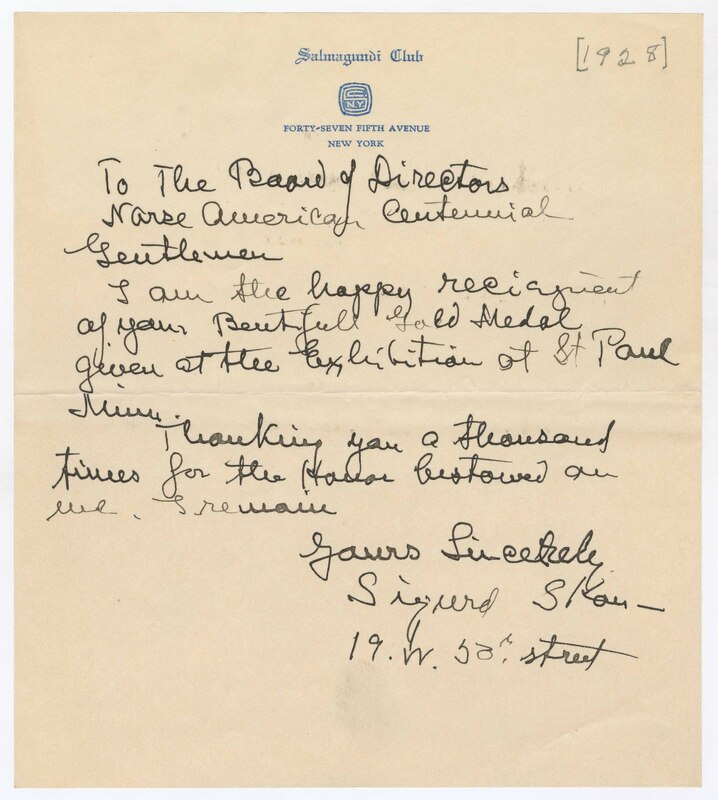 Salmagundi Club
[1928]
S.C.
N.Y.
FORTY-SEVEN FIFTH AVENUE
NEW YORK
To The Board of Directors
Norse American Centennial
Gentlemen
I am the happy recipient
of your Beutifull Gold Medal
given at the Exhibition at St Paul
Minn.
Thanking you a thousand
times for the Honor bestowed on
me. I remain
Yours Sincerely
Sigurd Skou
19. W. 50th street